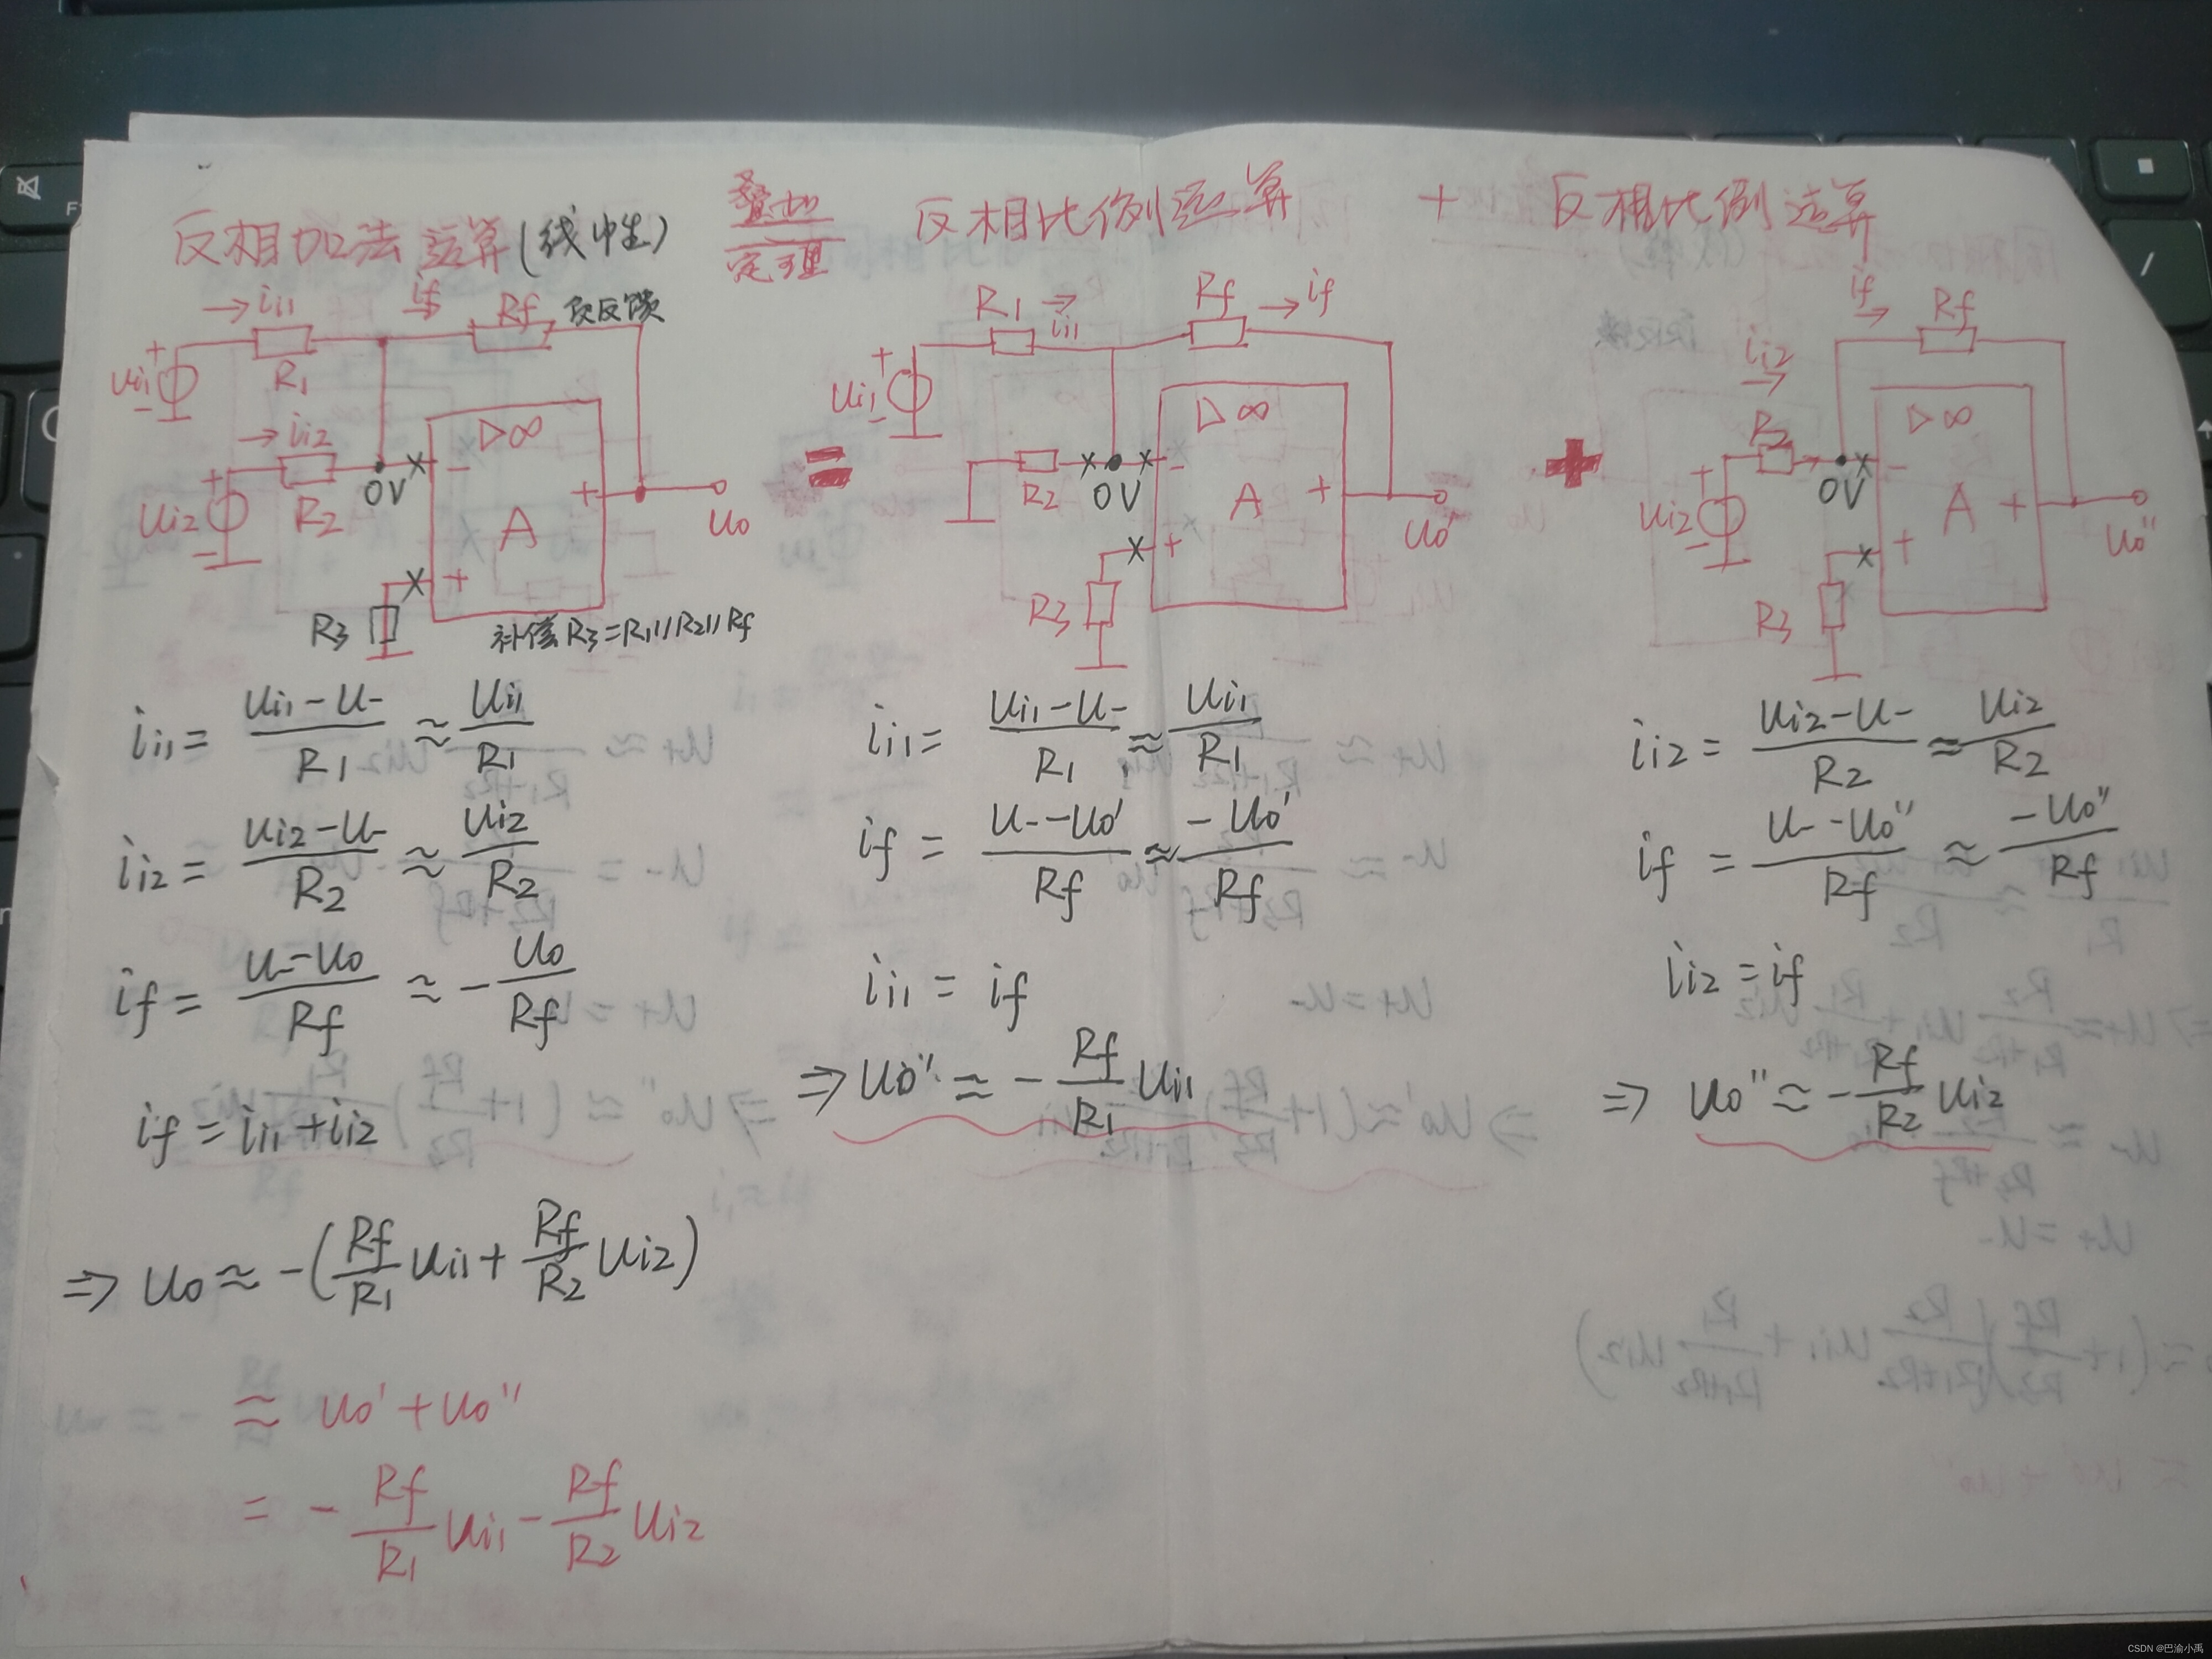 反相加法运算(线性) 叠加定理 反相比例运算 + 反相比例运算
→ii1 if→ Rf 负反馈
+ ui1 - R1
→ii2
+ ui2 - R2 0V × - ▷∞ A + uo
R3 × +
补偿 R3=R1//R2//Rf
=
R1 →ii1 Rf →if
+ ui1 -
R2 × 0V × - ▷∞ A + uo'
R3 × +
+
if→ Rf
ii2→
+ ui2 - R2 0V × - ▷∞ A + uo''
R3 × +
ii1 = (ui1 - u-)/R1 ≈ ui1/R1
ii2 = (ui2 - u-)/R2 ≈ ui2/R2
if = (u- - uo)/Rf ≈ - uo/Rf
if = ii1 + ii2
⇒ uo ≈ -(Rf/R1 ui1 + Rf/R2 ui2)
≈ uo' + uo''
= - Rf/R1 ui1 - Rf/R2 ui2
ii1 = (ui1 - u-)/R1 ≈ ui1/R1
if = (u- - uo')/Rf ≈ -uo'/Rf
ii1 = if
⇒ uo'' ≈ - Rf/R1 ui1
ii2 = (ui2 - u-)/R2 ≈ ui2/R2
if = (u- - uo'')/Rf ≈ -uo''/Rf
ii2 = if
⇒ uo'' ≈ - Rf/R2 ui2
CSDN @巴渝小禹